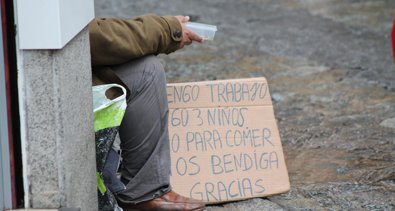 ENGO TRABAJO
GO 3 NIÑOS
O PARA COMER
NOS BENDIGA
GRACIAS